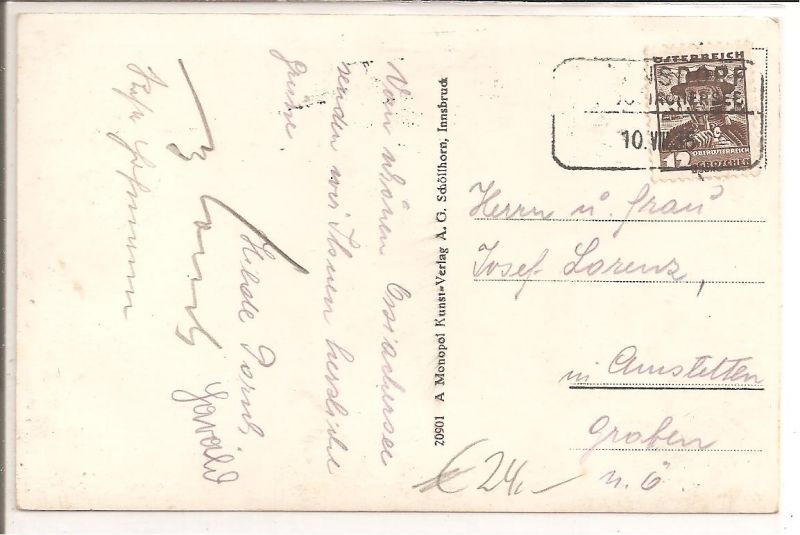 Vom schönen Ossiachersee
senden wir Ihnen herzliche
Grüsse.
Hilde
20901 A Monopol Kunst-Verlag A. G. Schöllhorn, Innsbruck
ÖSTERREICH
OBERÖSTERREICH
12 GROSCHEN
NSDORF
10. VII
Herrn u. Frau
Josef Lorenz,
in Amstetten
Graben
N. Ö
€ 24,-